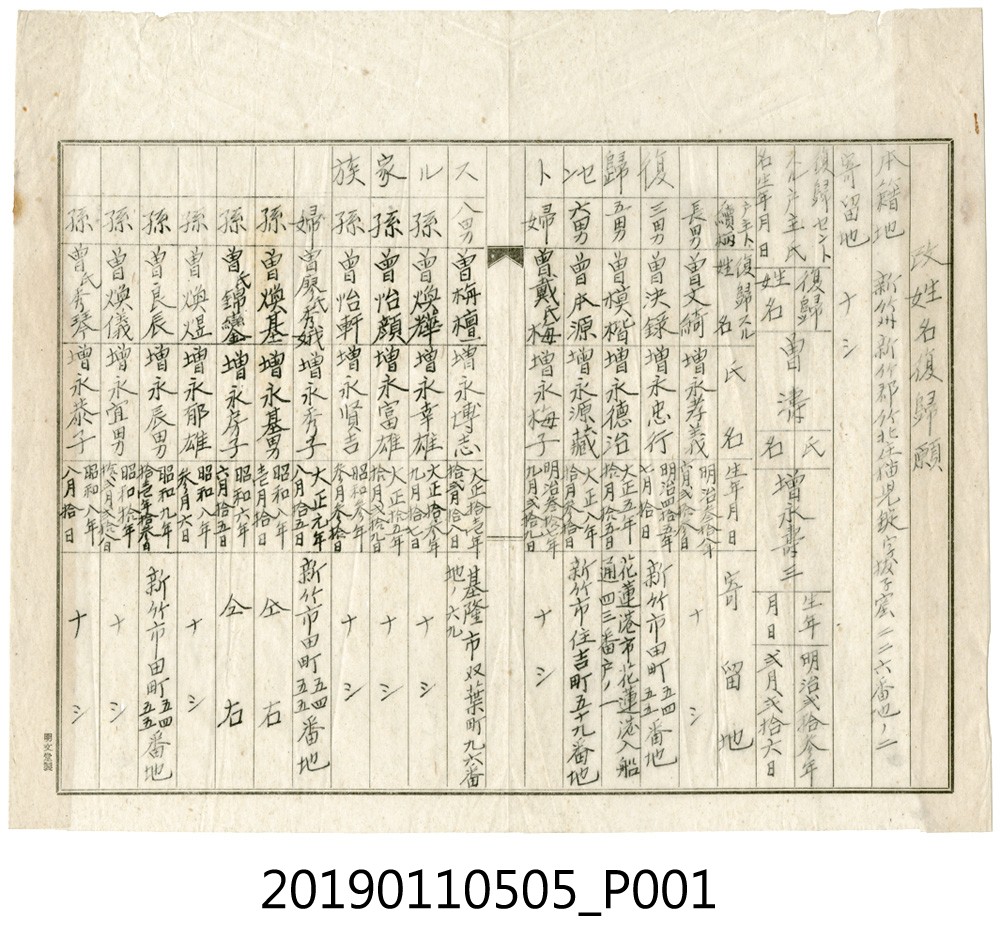 改姓名復歸願
本籍地 新竹州新竹郡竹北庄貓兒錠字拔子窟二二六番地ノ二
寄留地 ナシ
復歸セントスル戶主氏名生年月日
復歸姓名 曾濤
氏名 增永壽三
生年月日 明治弍拾叁年弍月弍拾六日
戶主ト續柄 復歸スル姓名 氏名 生年月日 寄留地
復歸セントスル家族
長男 曾文綺 增永孝義 明治叁拾八年 ナシ
三男 曾決錄 增永忠行 明治四拾五年七月拾日 新竹市田町五四五五番地
五男 曾模楷 增永德治 大正五年 花蓮港市花蓮港入船通四三番戶ノ一
六男 曾本源 增永源藏 大正八年拾月叁拾日 新竹市住吉町五十九番地
婦 曾戴氏梅 增永梅子 明治叁拾七年九月弍拾九日 ナシ
八男 曾梅檀 增永博志 大正拾壱年拾弍月拾八日 基隆市双葉町九六番地ノ六九
孫 曾煥輝 增永幸雄 大正拾叁年九月拾七日 ナシ
孫 曾怡顏 增永富雄 大正拾五年拾月弍拾九日 ナシ
孫 曾怡軒 增永賢吉 昭和叁年叁月叁拾日 ナシ
婦 曾廖氏秀娥 增永秀子 大正元年八月拾五日 新竹市田町五四五五番地
孫 曾煥基 增永基男 昭和八年壱月拾日 仝右
孫 曾氏錦鑾 增永房子 昭和六年六月拾五日 仝右
孫 曾煥煜 增永郁雄 昭和八年叁月六日 ナシ
孫 曾良辰 增永辰男 昭和九年拾壱月拾叁日 新竹市田町五四五五番地
孫 曾煥儀 增永宜男 昭和拾年 ナシ
孫 曾氏秀琴 增永恭子 昭和八年八月拾日 ナシ
明文堂製
20190110505_P001